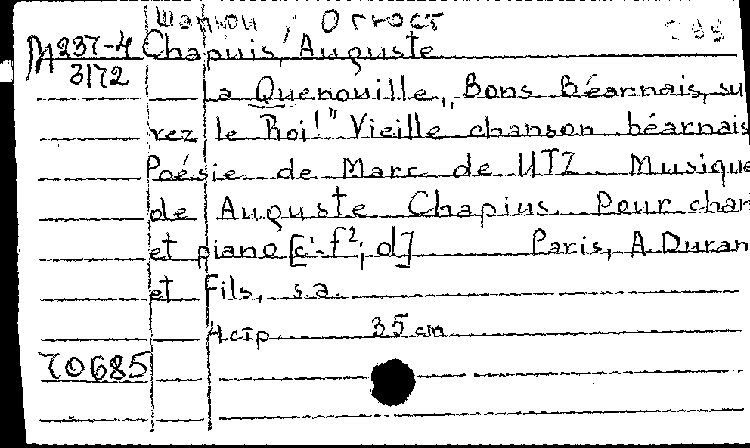 Шапюи, Огюст
М 237-4 Chapuis, Auguste
3172
La Quenouille, „Bons Béarnais, sui
vez le Roi!" Vieille chanson béarnais
Poésie de Marc de UTZ Musique
de Auguste Chapius. Pour chan
et piano [c¹-f², d] Paris, A. Duran
et fils, s.a.
4 стр 35 cm
70685